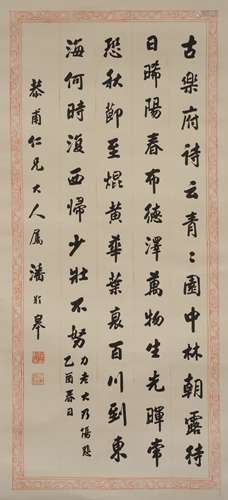 古樂府詩云青〻園中林朝露待
日晞陽春布德澤萬物生光暉常
恐秋節至焜黃華葉衰百川到東
海何時復西歸少壯不努
力老大乃傷悲
乙酉春日
恭甫仁兄大人屬 潘皋